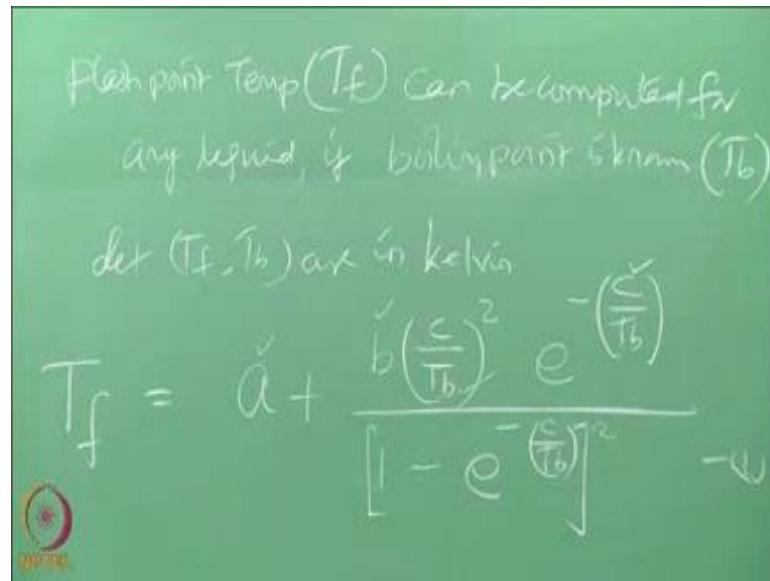 Flash point Temp (Tf) can be computed for
any liquid, if boiling point is known (Tb)
let (Tf, Tb) are in kelvin
Tf = a + b(c/Tb)² e^-(c/Tb) / [1 - e^-(c/Tb)]² -(1)
NPTEL